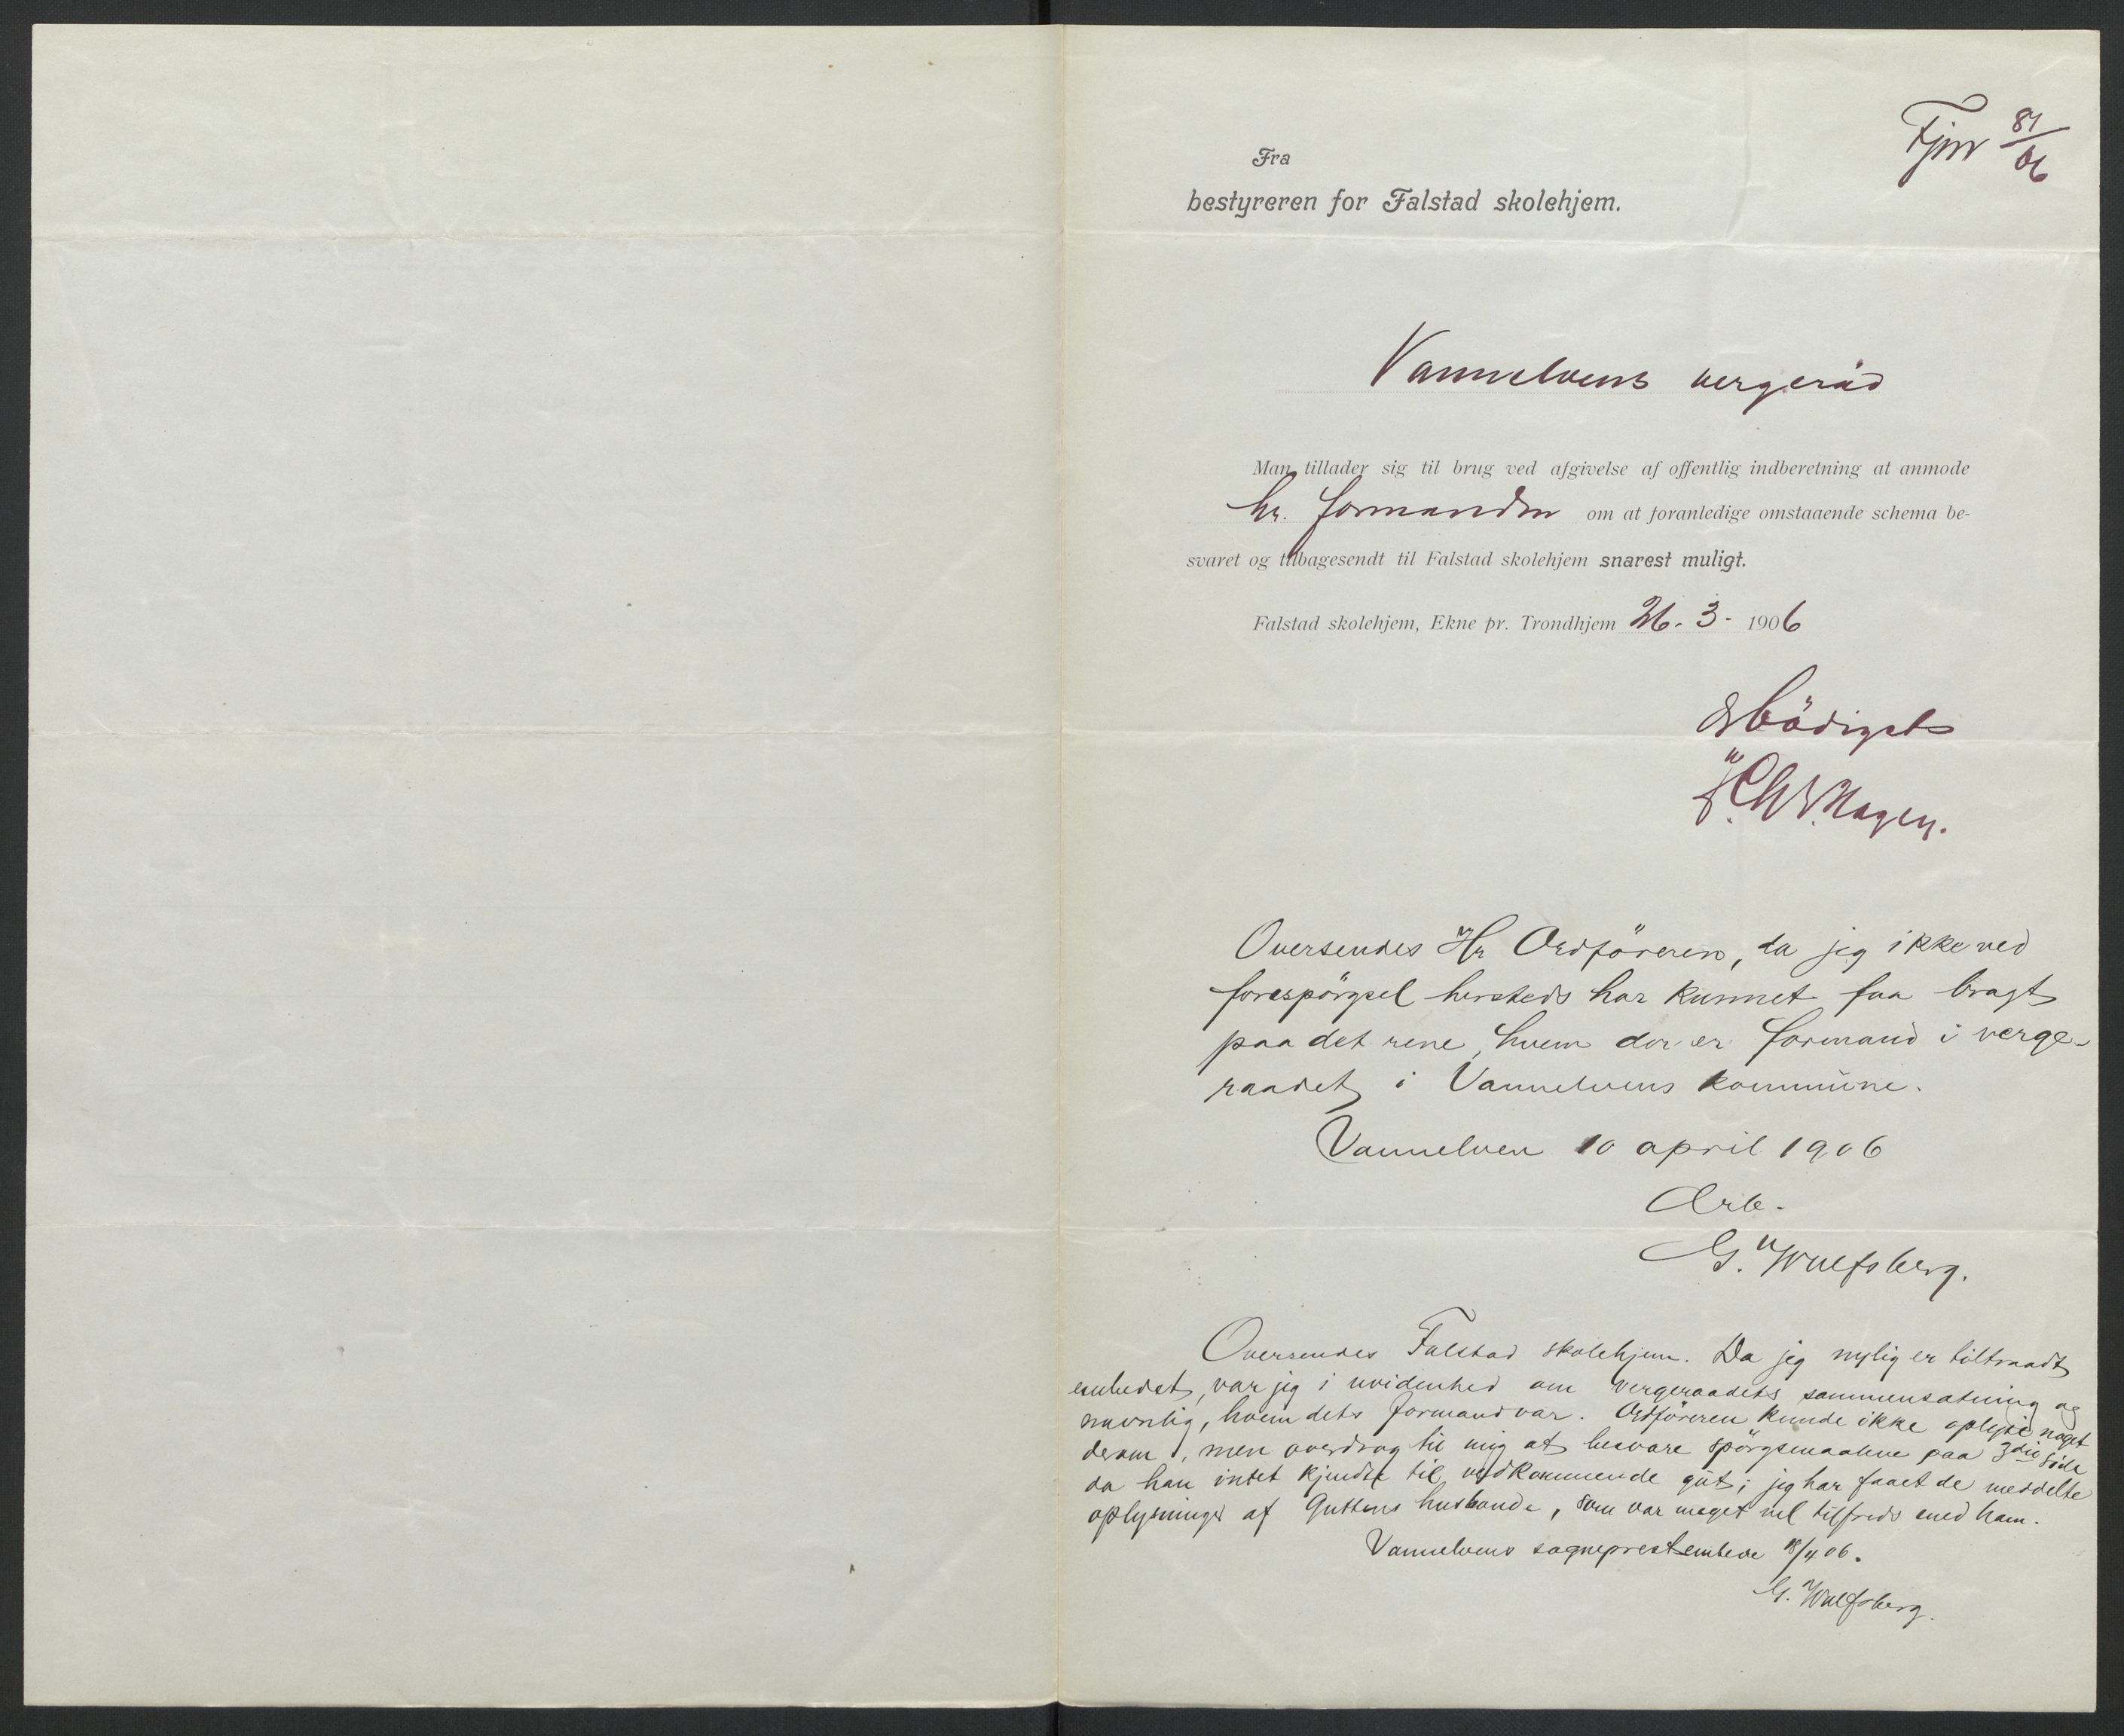 Fjnr 87/06
Fra
bestyreren for Falstad skolehjem.
Vannelvens vergeråd
Man tillader sig til brug ved afgivelse af offentlig indberetning at anmode
hr. formanden om at foranledige omstaaende schema be-
svaret og tilbagesendt til Falstad skolehjem snarest muligt.
Falstad skolehjem, Ekne pr. Trondhjem 26. 3. 1906
ærbödigst
Hagen.
Oversendes Hr Ordföreren, da jeg ikke ved
forespörgsel hersteds har kunnet faa bragt
paa det rene, hvem der er formand i verge-
raadet i Vannelvens kommune.
Vannelven 10 april 1906
Ærb.
G. Wulfsberg.
Oversendes Falstad skolehjem. Da jeg nylig er tiltraadt
embedet, var jeg i uvidenhed om vergeraadets sammensætning og
navnlig, hvem dets formand var. Ordföreren kunde ikke oplyse noget
derom, men overdrog til mig at besvare spörgsmaalene paa 3die side
da han intet kjendte til vedkommende gut; jeg har faaet de meddelte
oplysninger af Guttens husbonde, som var meget vel tilfreds med ham.
Vannelvens sogneprestembede 18/4 06.
G. Wulfsberg.